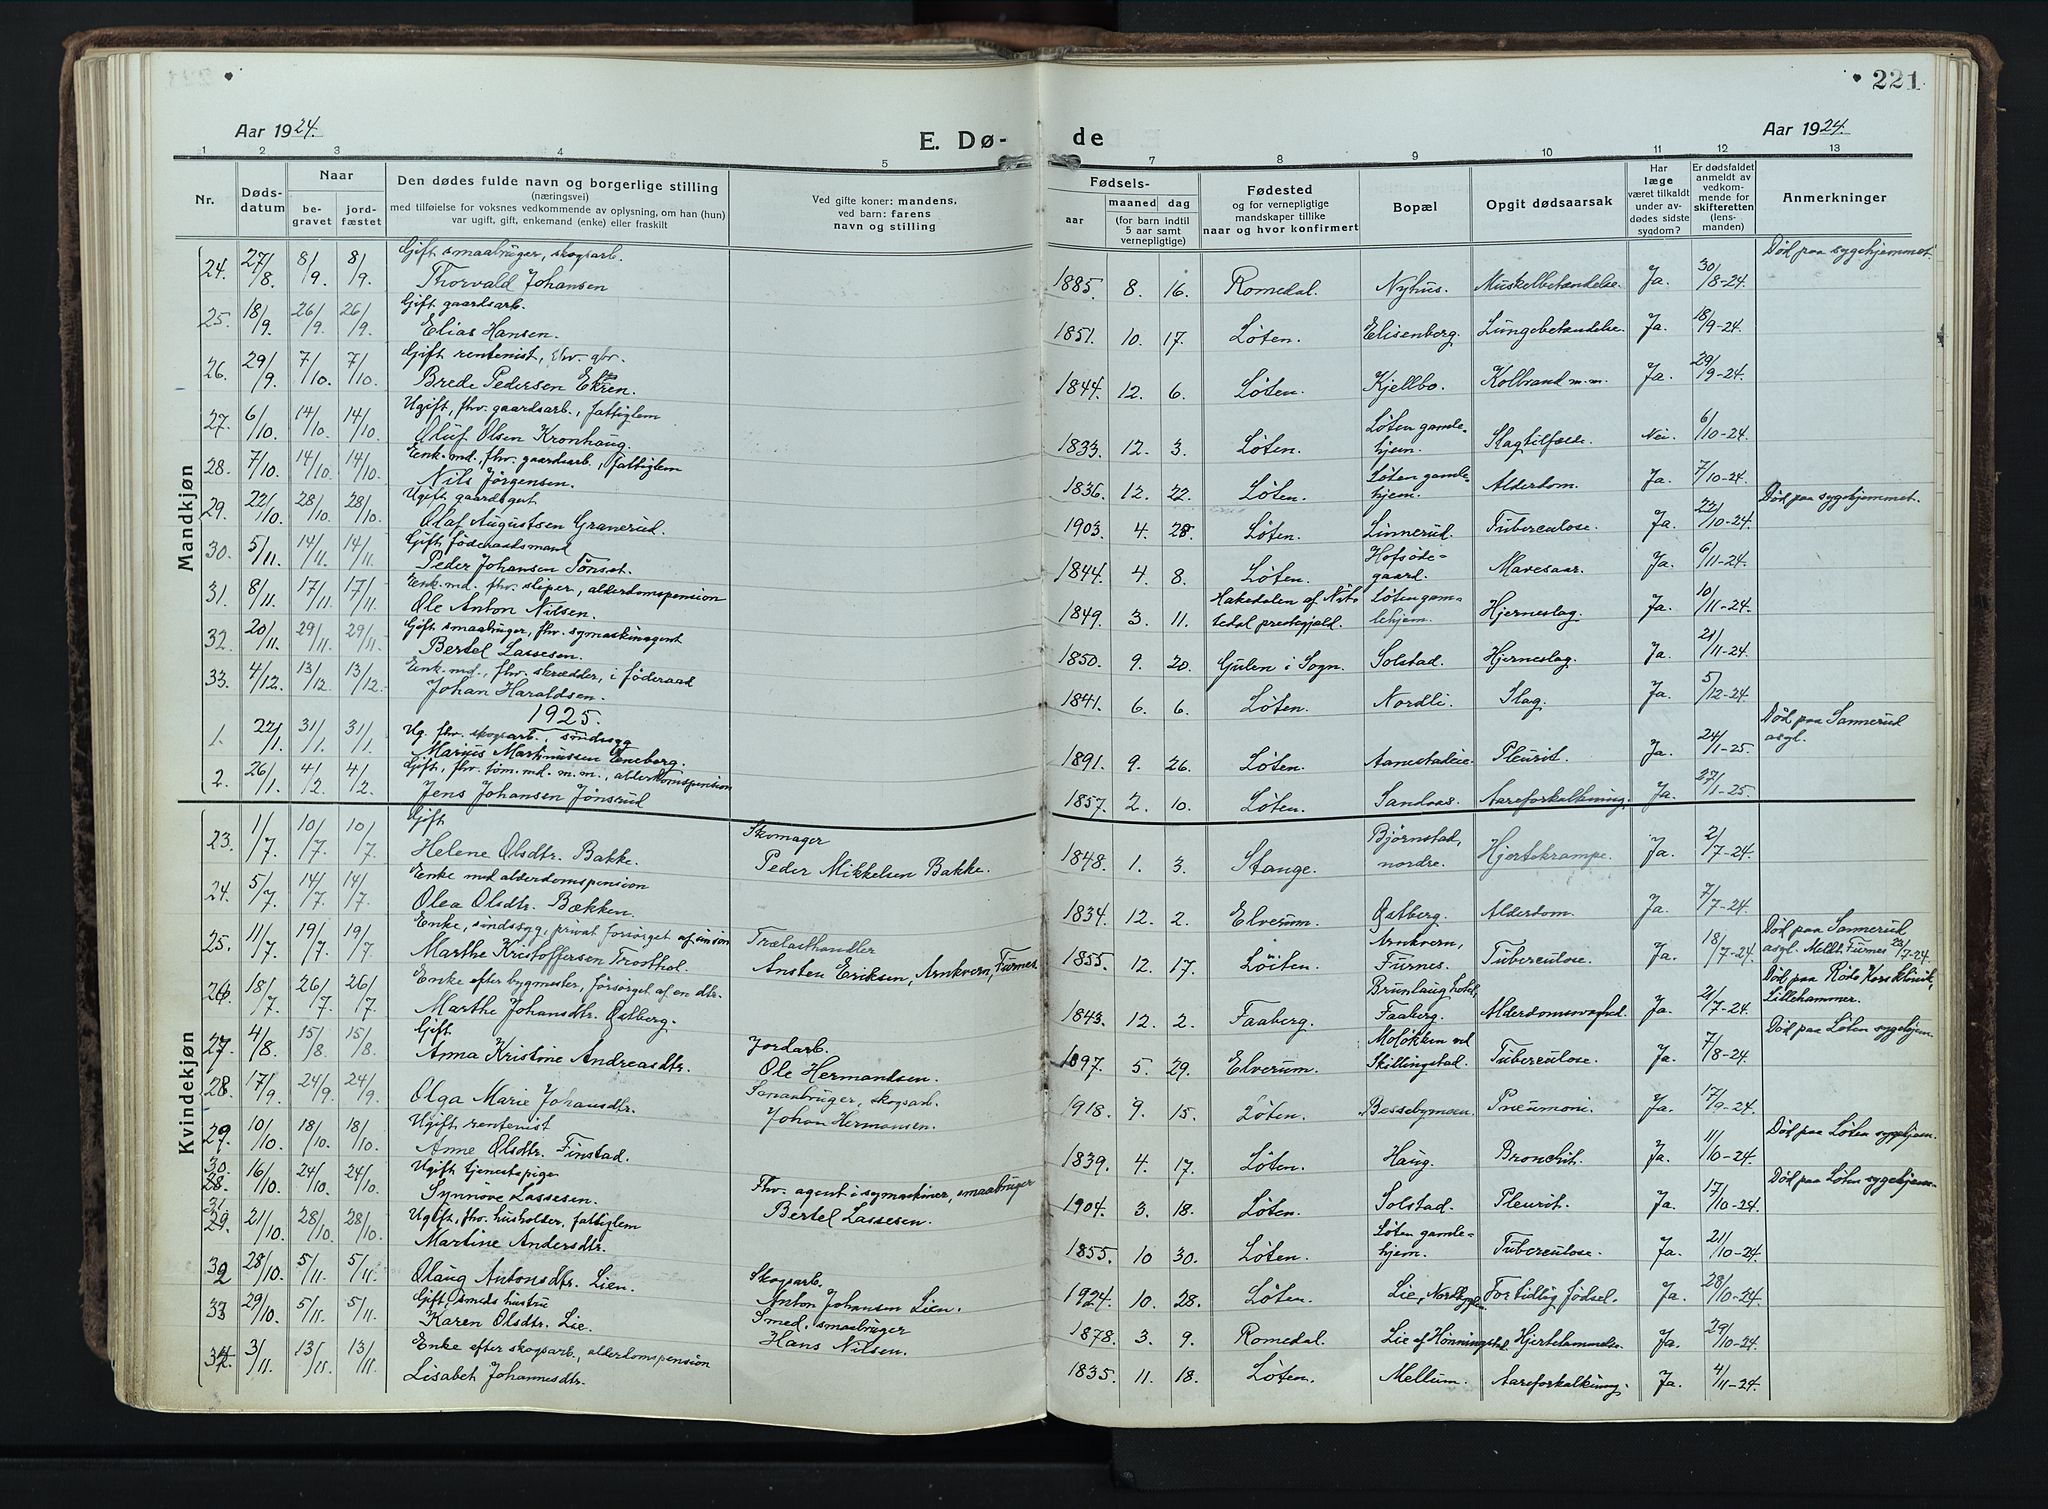 221
Aar 1924.
E. Dø-
de
Aar 1924.
1 2 3 4 5 7 8 9 10 11 12 13
Nr.
Døds-
datum
Naar
be-
gravet
jord-
fæstet
Den dødes fulde navn og borgerlige stilling
(næringsvei)
med tilføielse for voksnes vedkommende av oplysning, om han (hun)
var ugift, gift, enkemand (enke) eller fraskilt
Ved gifte koner: mandens,
ved barn: farens
navn og stilling
Fødsels-
aar
maaned dag
(for barn indtil
5 aar samt
vernepligtige)
Fødested
og for vernepligtige
mandskaper tillike
naar og hvor konfirmert
Bopæl
Opgit dødsaarsak
Har
læge
været tilkaldt
under av-
dødes sidste
sygdom?
Er dødsfaldet
anmeldt av
vedkom-
mende for
skifteretten
(lens-
manden)
Anmerkninger
Mandkjøn
24. 27/8. 8/9. 8/9. Gift smaabruger, skogsarb. Død paa sygehjemmet.
Thorvald Johansen 1885. 8. 16. Romedal. Nyhus. Muskelbetændelse. Ja. 30/8-24.
25. 18/9. 26/9. 26/9. Gift gaardsarb.
Elias Hansen. 1851. 10. 17. Løten. Elisenberg. Lungebetændelse. Ja. 18/9-24.
26. 29/9. 7/10. 7/10. Gift rentenist, fhv. gbr.
Brede Pedersen Ekren. 1844. 12. 6. Løten. Kjellbo. Kolbrand m.m. Ja. 29/9-24.
27. 6/10. 14/10. 14/10. Ugift, fhv. gaardsarb., fattiglem
Oluf Olsen Kronhaug. 1833. 12. 3. Løten. Løten gamle-
hjem. Slagtilfælde. Nei. 6/10-24.
28. 7/10. 14/10. 14/10. Enk.md. fhv. gaardsarb., fattiglem
Nils Jørgensen. 1836. 12. 22. Løten. Løten gamle-
hjem. Alderdom. Ja. 7/10-24.
29. 22/10. 28/10. 28/10. Ugift gaardsgut Død paa sygehjemmet.
Olaf Augustsen Granerud. 1903. 4. 28. Løten. Linnerud. Tuberculose. Ja. 22/10-24.
30. 5/11. 14/11. 14/11. Gift føderaadsmand
Peder Johansen Tønset. 1844. 4. 8. Løten. Hofsøde-
gaard. Mavesaar. Ja. 6/11-24.
31. 8/11. 17/11. 17/11. Enk.md. fhv. sliper, alderdomspension
Ole Anton Nilsen. 1849. 3. 11. Hakedalen af Nite-
dal prestegjæld. Løten gam-
lehjem. Hjerneslag. Ja. 10/11-24.
32. 20/11. 29/11. 29/11. Gift smaabruger, fhv. symaskinagent
Bertel Lassesen. 1850. 9. 20. Gulen i Sogn. Solstad. Hjerneslag. Ja. 21/11-24.
33. 4/12. 13/12. 13/12. Enk.md., fhv. skrædder, i føderaad
Johan Haraldsen. 1841. 6. 6. Løten. Nordli. Slag. Ja. 5/12-24.
1925.
1. 22/1. 31/1. 31/1. Ug. fhv. skogsarb., sindssyg Død paa Sannerud
asyl.
Marius Martinussen Eneberg. 1891. 9. 26. Løten. Aanestadeie. Pleurit. Ja. 24/1-25.
2. 26/1. 4/2. 4/2. Gift, fhv. tøm.md. m.m., alderdomspension
Jens Johansen Jønsrud 1857. 2. 10. Løten. Sandaas. Aareforkalkning. Ja. 27/1-25.
Kvindekjøn
23. 1/7. 10/7. 10/7. Gift Skomager
Helene Olsdtr. Bakke. Peder Mikkelsen Bakke. 1848. 1. 3. Stange. Bjørnstad,
nordre. Hjertekrampe. Ja. 2/7-24.
24. 5/7. 14/7. 14/7. Enke med alderdomspension
Olea Olsdtr. Bækken. 1834. 12. 2. Elverum. Østberg. Alderdom. Ja. 7/7-24.
25. 11/7. 19/7. 19/7. Enke, sindssyg, privat forsørget af Trælasthandler Død paa Sannerud
asyl. Meldt Furnes 23/7-24.
Marthe Kristoffersen Ansten Eriksen, Arnkvern, Furnes. 1855. 12. 17. Løiten. Arnkvern,
Furnes. Tuberculose. Ja. 18/7-24.
26. 18/7. 26/7. 26/7. Enke efter bygmester, forsørget af en dtr. Død paa Røde Kors klinik,
Lillehammer.
Marthe Johansdtr. Østberg. 1843. 12. 2. Faaberg. Brunlaug hotel,
Faaberg. Alderdomssvaghed. Ja. 21/7-24.
27. 4/8. 15/8. 15/8. Gift Jordarb. Død paa Løten sygehjem.
Anna Kristine Andreasdtr. Ole Hermandsen. 1897. 5. 29. Elverum. Moløkken ved
Skillingstad. Tuberculose. Ja. 7/8-24.
28. 17/9. 24/9. 24/9. Smaabruger, skogsarb.
Olga Marie Johansdtr. Johan Hermansen. 1918. 9. 15. Løten. Bessebymoen. Pneumoni. Ja. 17/9-24.
29. 10/10. 18/10. 18/10. Ugift rentenist Død paa Løten sygehjem.
Anne Olsdtr. Finstad. 1839. 4. 17. Løten. Haug. Bronchit. Ja. 11/10-24.
30. 28. 16/10. 24/10. 24/10. Ugift tjenestepige Fhv. agent i symaskiner, smaabruger Død paa Løten sygehjem.
Synnøve Lassesen. Bertel Lassesen. 1904. 3. 18. Løten. Solstad. Pleurit. Ja. 17/10-24.
31. 29. 21/10. 28/10. 28/10. Ugift, fhv. husholder, fattiglem
Martine Andersdtr. 1855. 10 30. Løten. Løten gamle-
hjem. Tuberculose. Ja. 21/10-24.
32 28/10. 5/11. 5/11. Skogsarb.
Olaug Antonsdtr. Lien. Anton Johansen Lien. 1924. 10. 28. Løten. Lie, Nordbygden Fortidlig fødsel. Ja. 28/10-24.
33 29/10. 5/11. 5/11. Gift, smeds hustru Smed, smaabruger
Karen Olsdtr. Lie. Hans Nilsen. 1878. 3. 9. Romedal. Lie af Hønningstad. Hjertelammelse. Ja. 29/10-24.
34. 3/11. 13/11. 13/11. Enke efter skogsarb., alderdomspension
Lisabet Johannesdtr. 1835. 11. 18. Løten. Mellum. Aareforkalkning. Ja. 4/11-24.